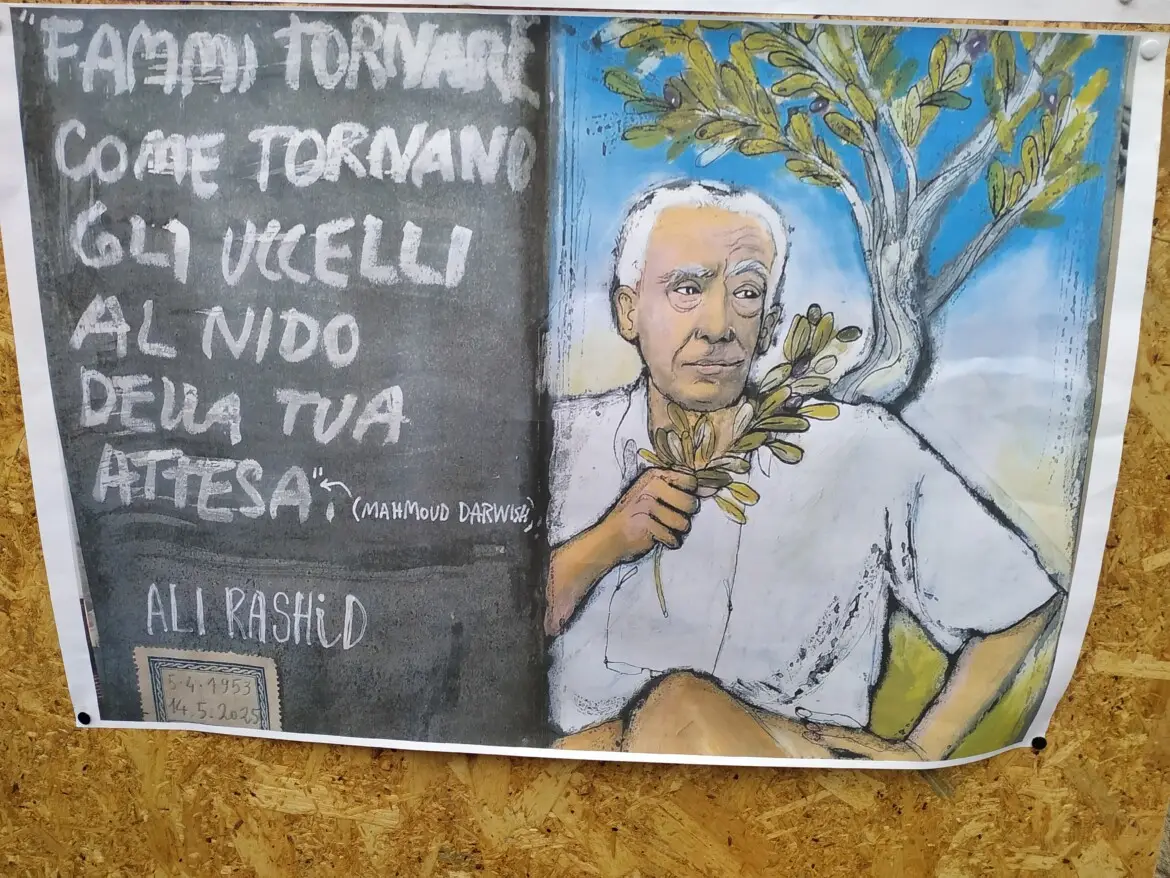 "FAMMI TORNARE
COME TORNANO
GLI UCCELLI
AL NIDO
DELLA TUA
ATTESA".
(MAHMOUD DARWISH)
ALI RASHiD
5.4.1953
14.5.2025